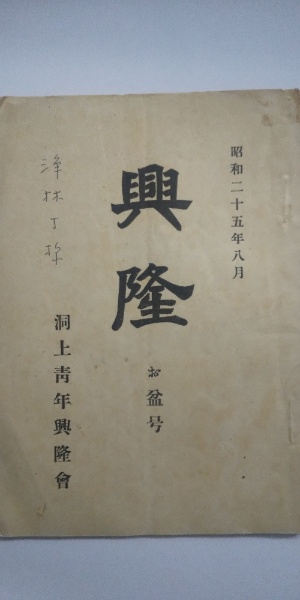 昭和二十五年八月
興隆
お盆号
洞上青年興隆會